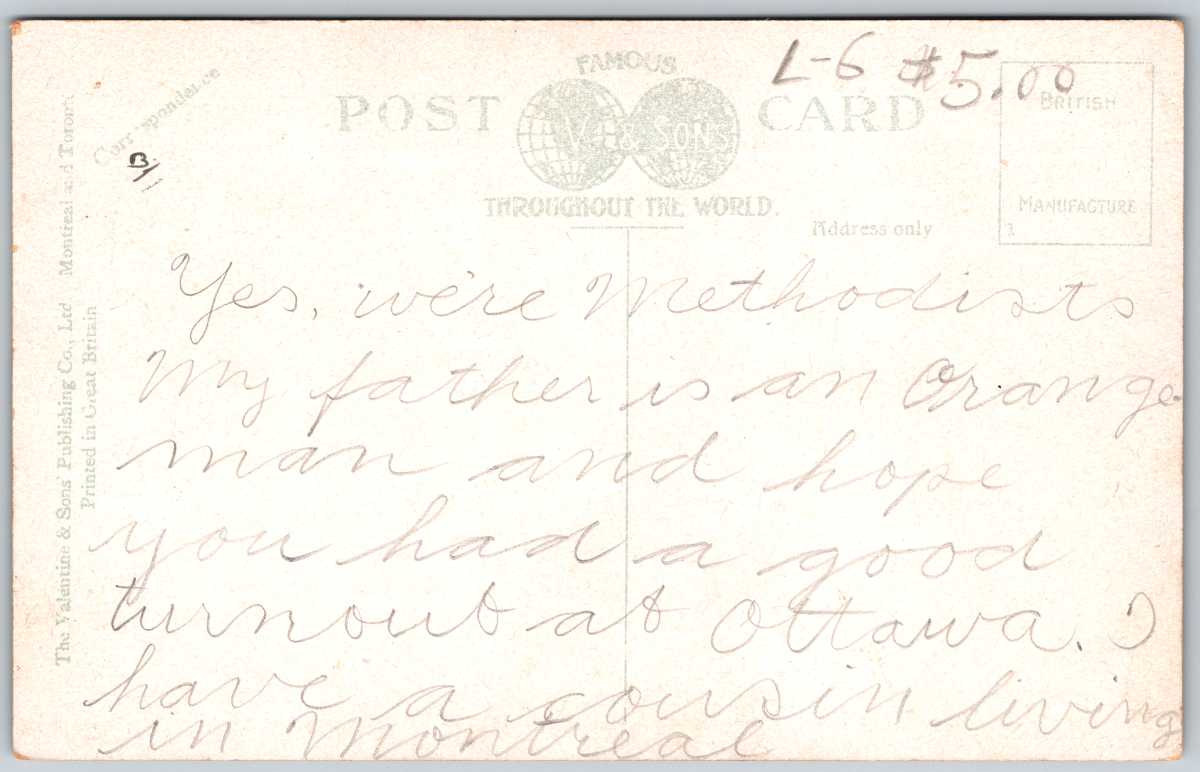 L-6 $5.00
FAMOUS
POST CARD
V & SONS
THROUGHOUT THE WORLD.
BRITISH
MANUFACTURE
Correspondence
Address only
B
The Valentine & Sons' Publishing Co., Ltd Montreal and Toronto
Printed in Great Britain
Yes, we're Methodists
My father is an Orange
man and hope
you had a good
turnout at Ottawa. I
have a cousin living
in Montreal